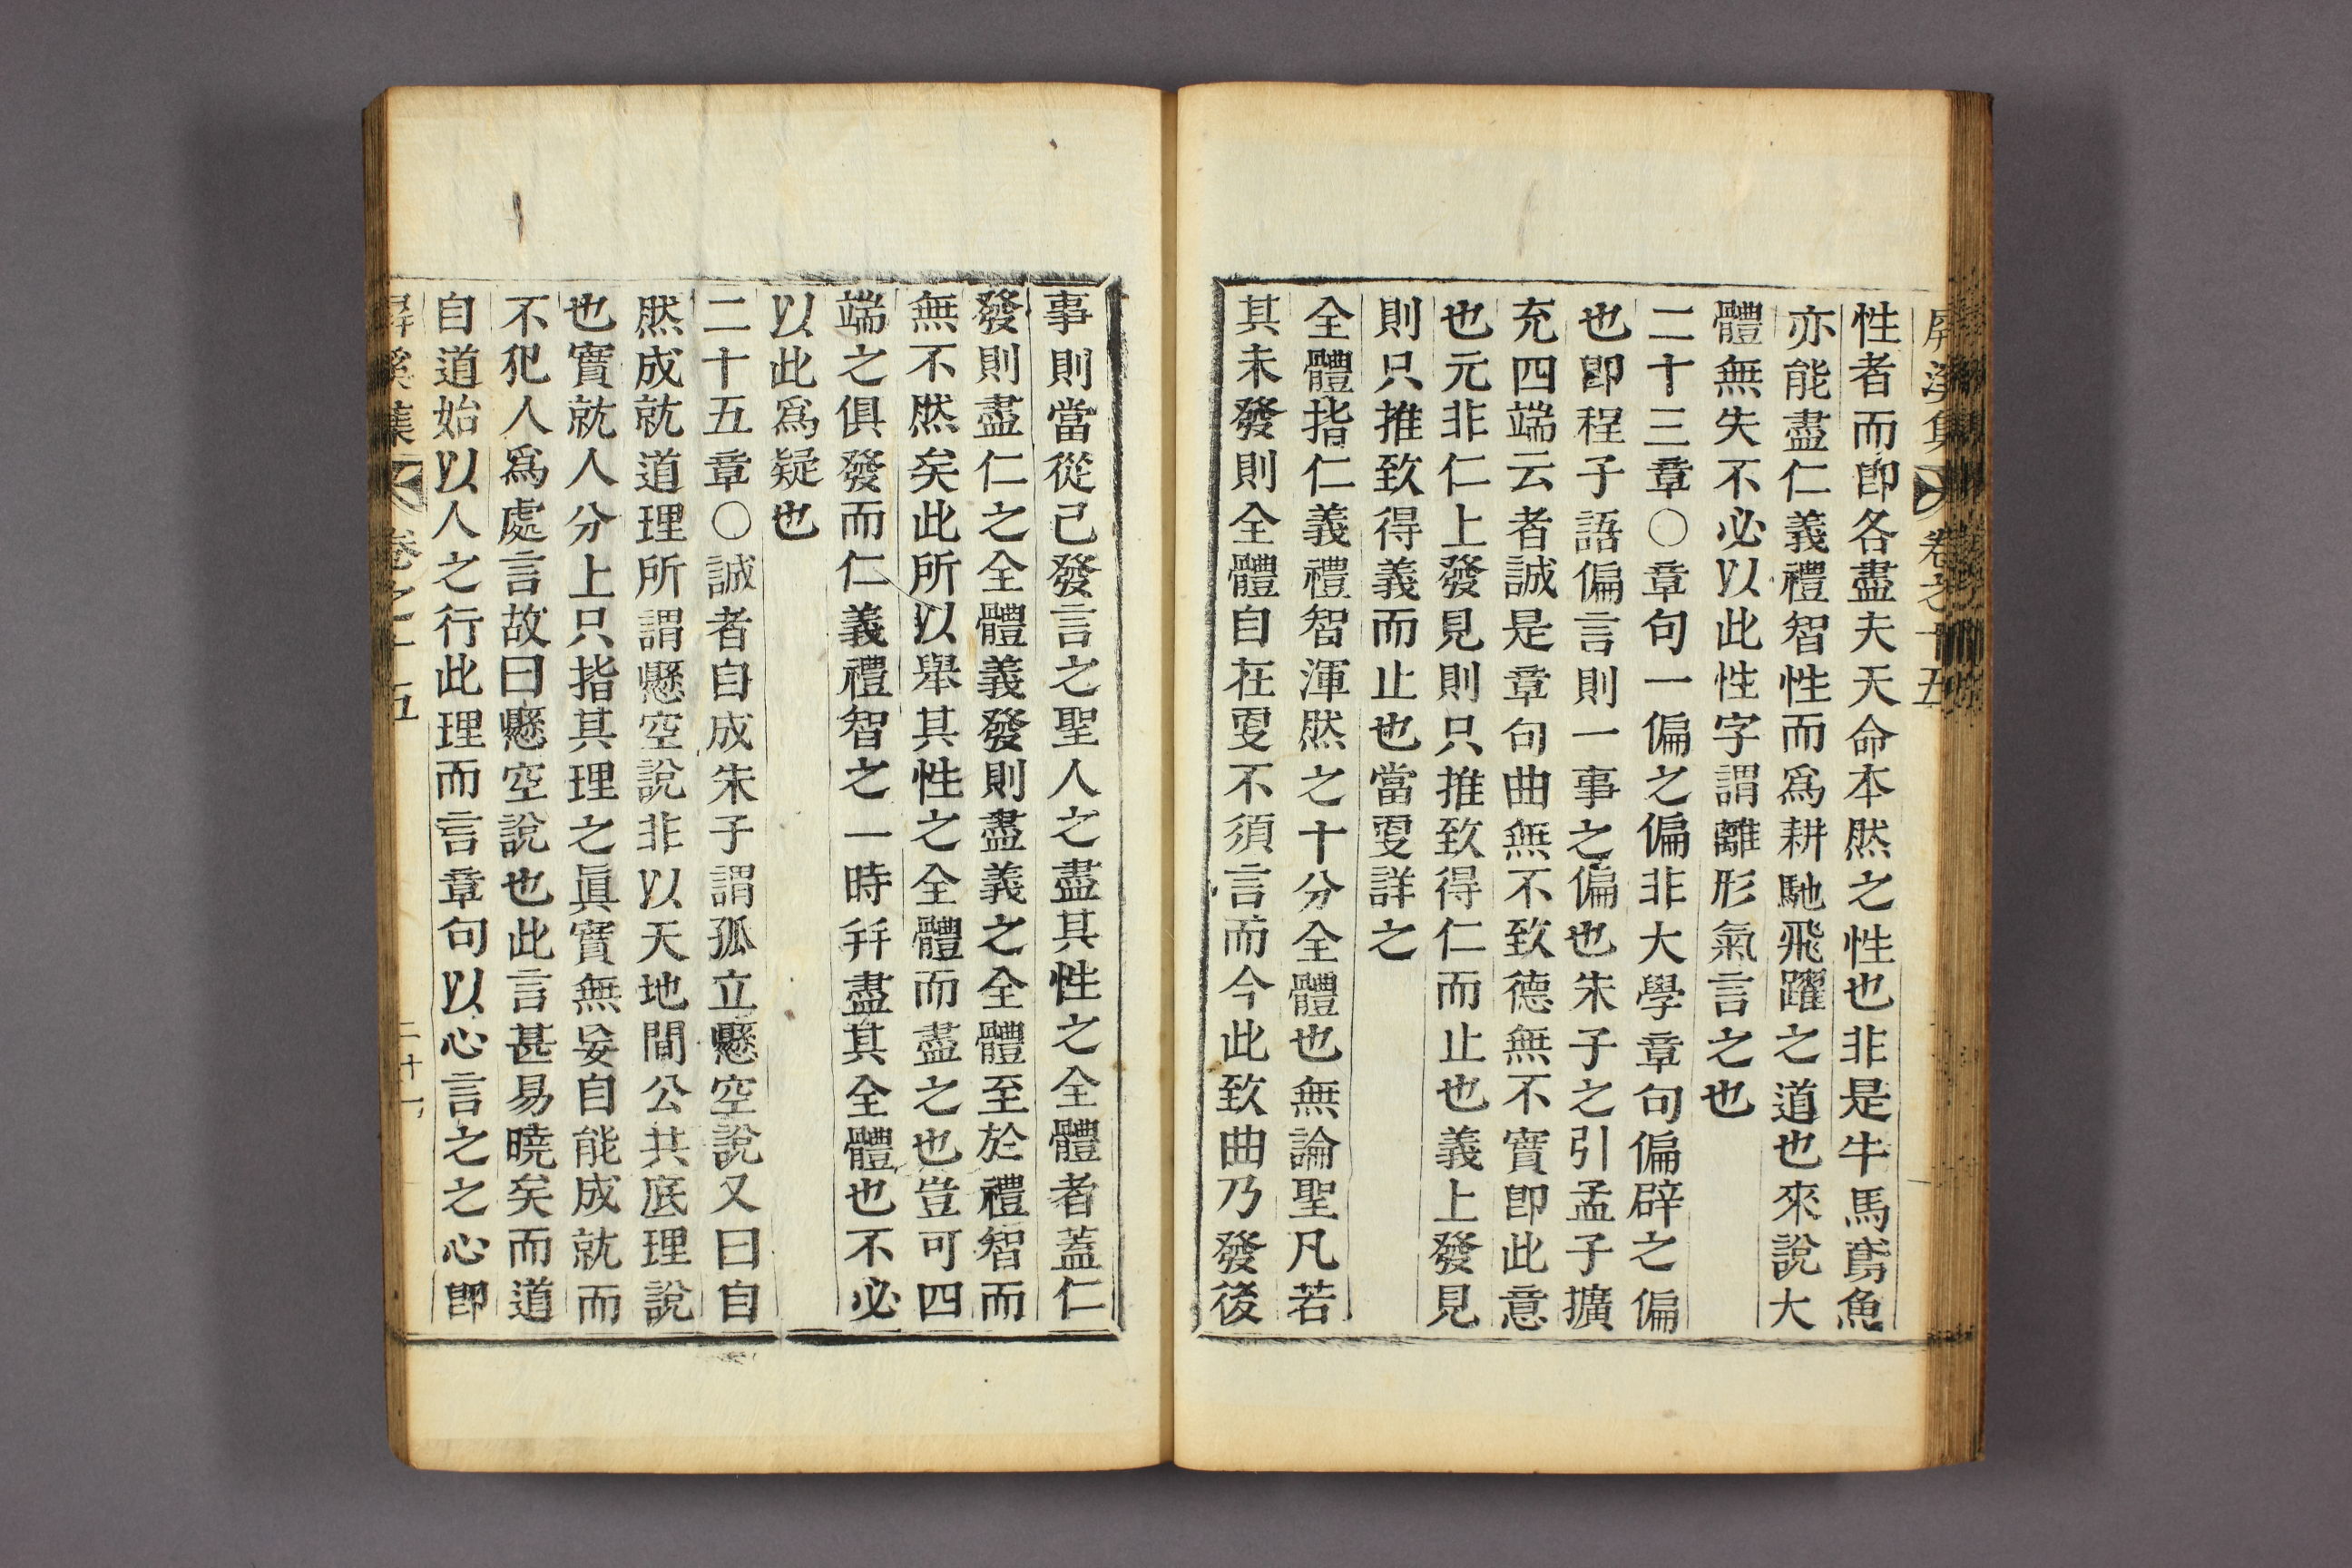 屛溪集 卷之十五
性者而卽各盡夫天命本然之性也非是牛馬鳶魚
亦能盡仁義禮智性而爲耕馳飛躍之道也來說大
體無失不必以此性字謂離形氣言之也
二十三章○章句一偏之偏非大學章句偏辟之偏
也卽程子語偏言則一事之偏也朱子之引孟子擴
充四端云者誠是章句曲無不致德無不實卽此意
也元非仁上發見則只推致得仁而止也義上發見
則只推致得義而止也當更詳之
全體指仁義禮智渾然之十分全體也無論聖凡若
其未發則全體自在更不須言而今此致曲乃發後
事則當從已發言之聖人之盡其性之全體者蓋仁
發則盡仁之全體義發則盡義之全體至於禮智而
無不然矣此所以舉其性之全體而盡之也豈可四
端之俱發而仁義禮智之一時幷盡其全體也不必
以此爲疑也
二十五章○誠者自成朱子謂孤立懸空說又曰自
然成就道理所謂懸空說非以天地間公共底理說
也實就人分上只指其理之眞實無妄自能成就而
不犯人爲處言故曰懸空說也此言甚易曉矣而道
自道始以人之行此理而言章句以心言之之心卽
屛溪集 卷之十五